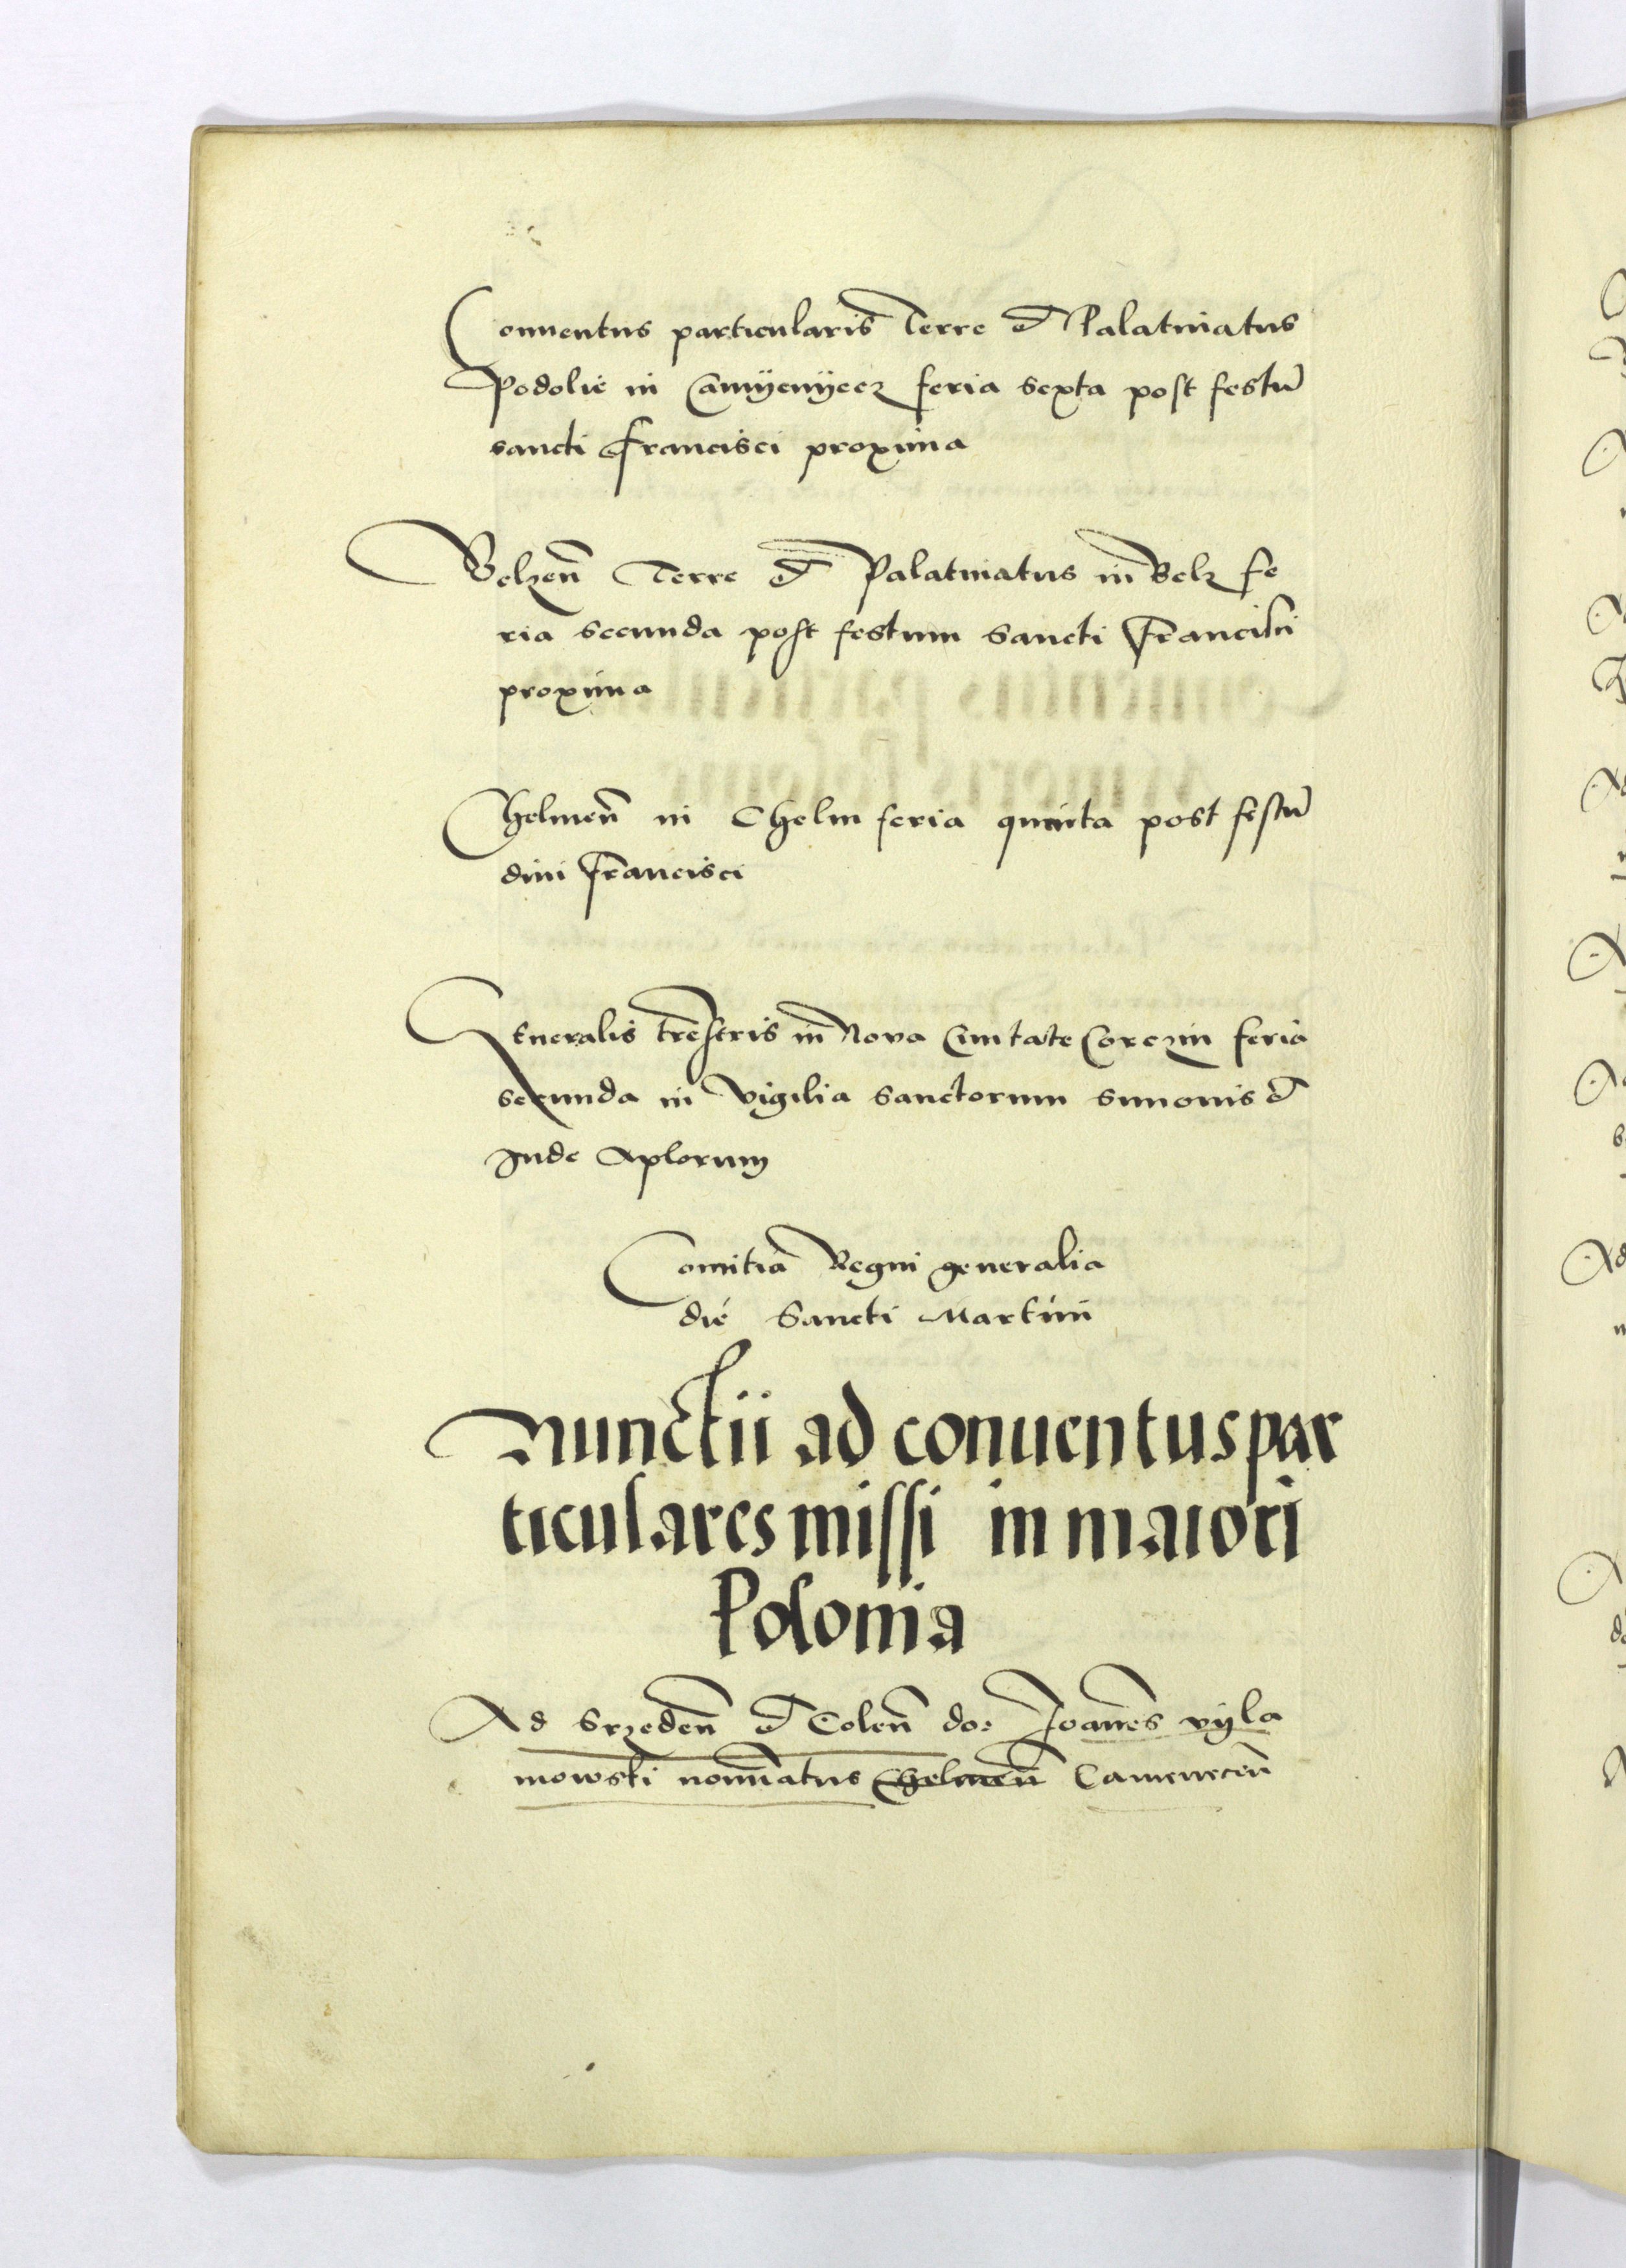 Conuentus particularis Terre et Palatinatus
Podolie in Camÿenÿecz feria sexta post festū
sancti Francisci proxima
Belzeñ Terre et Palatinatus in Belz fe
ria secunda post festum sancti Francisci
proxima
Chelmeñ in Chelm feria quinta post festū
diui Francisci
Generalis trestris in Noua Ciuitate Corczin feria
secunda in vigilia sanctorum simonis et
Jude Aplorum
Comitia Regni generalia
die Sancti Martini
Nunctii ad conuentus par
ticulares missi in maiori
Polonia
Ad Srzedeñ et Coleñ do: Joannes vÿla
mowski nominatus Chelmeñ Cameneceñ